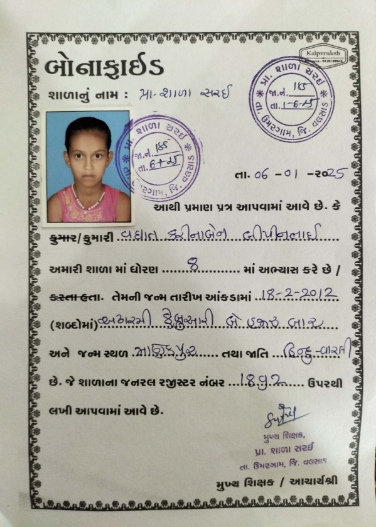 Kalpvruksh
બોનાફાઈડ
શાળાનું નામ : પ્રા-શાળા સરઈ
પ્રા. શાળા સરઈ
જા.નં. 165
તા. ઉમરગામ, જિ. વલસાડ
પ્રા. શાળા સરઈ
જા.નં. 165
તા. ઉમરગામ, જિ. વલસાડ
તા. 06 - 01 - 2025
આથી પ્રમાણ પત્ર આપવામાં આવે છે. કે
કુમાર/કુમારી
અમારી શાળા માં ધોરણ 8 માં અભ્યાસ કરે છે /
કરતા હતા. તેમની જન્મ તારીખ આંકડામાં 18-2-2012
(શબ્દોમાં) અઢારમી ફેબ્રુઆરી બે હજાર બાર
અને જન્મ સ્થળ તથા જાતિ હિન્દુ-વારલી
છે. જે શાળાના જનરલ રજીસ્ટર નંબર 1892 ઉપરથી
લખી આપવામાં આવે છે.
મુખ્ય શિક્ષક,
પ્રા. શાળા સરઈ
તા. ઉમરગામ, જિ. વલસાડ
મુખ્ય શિક્ષક / આચાર્યશ્રી